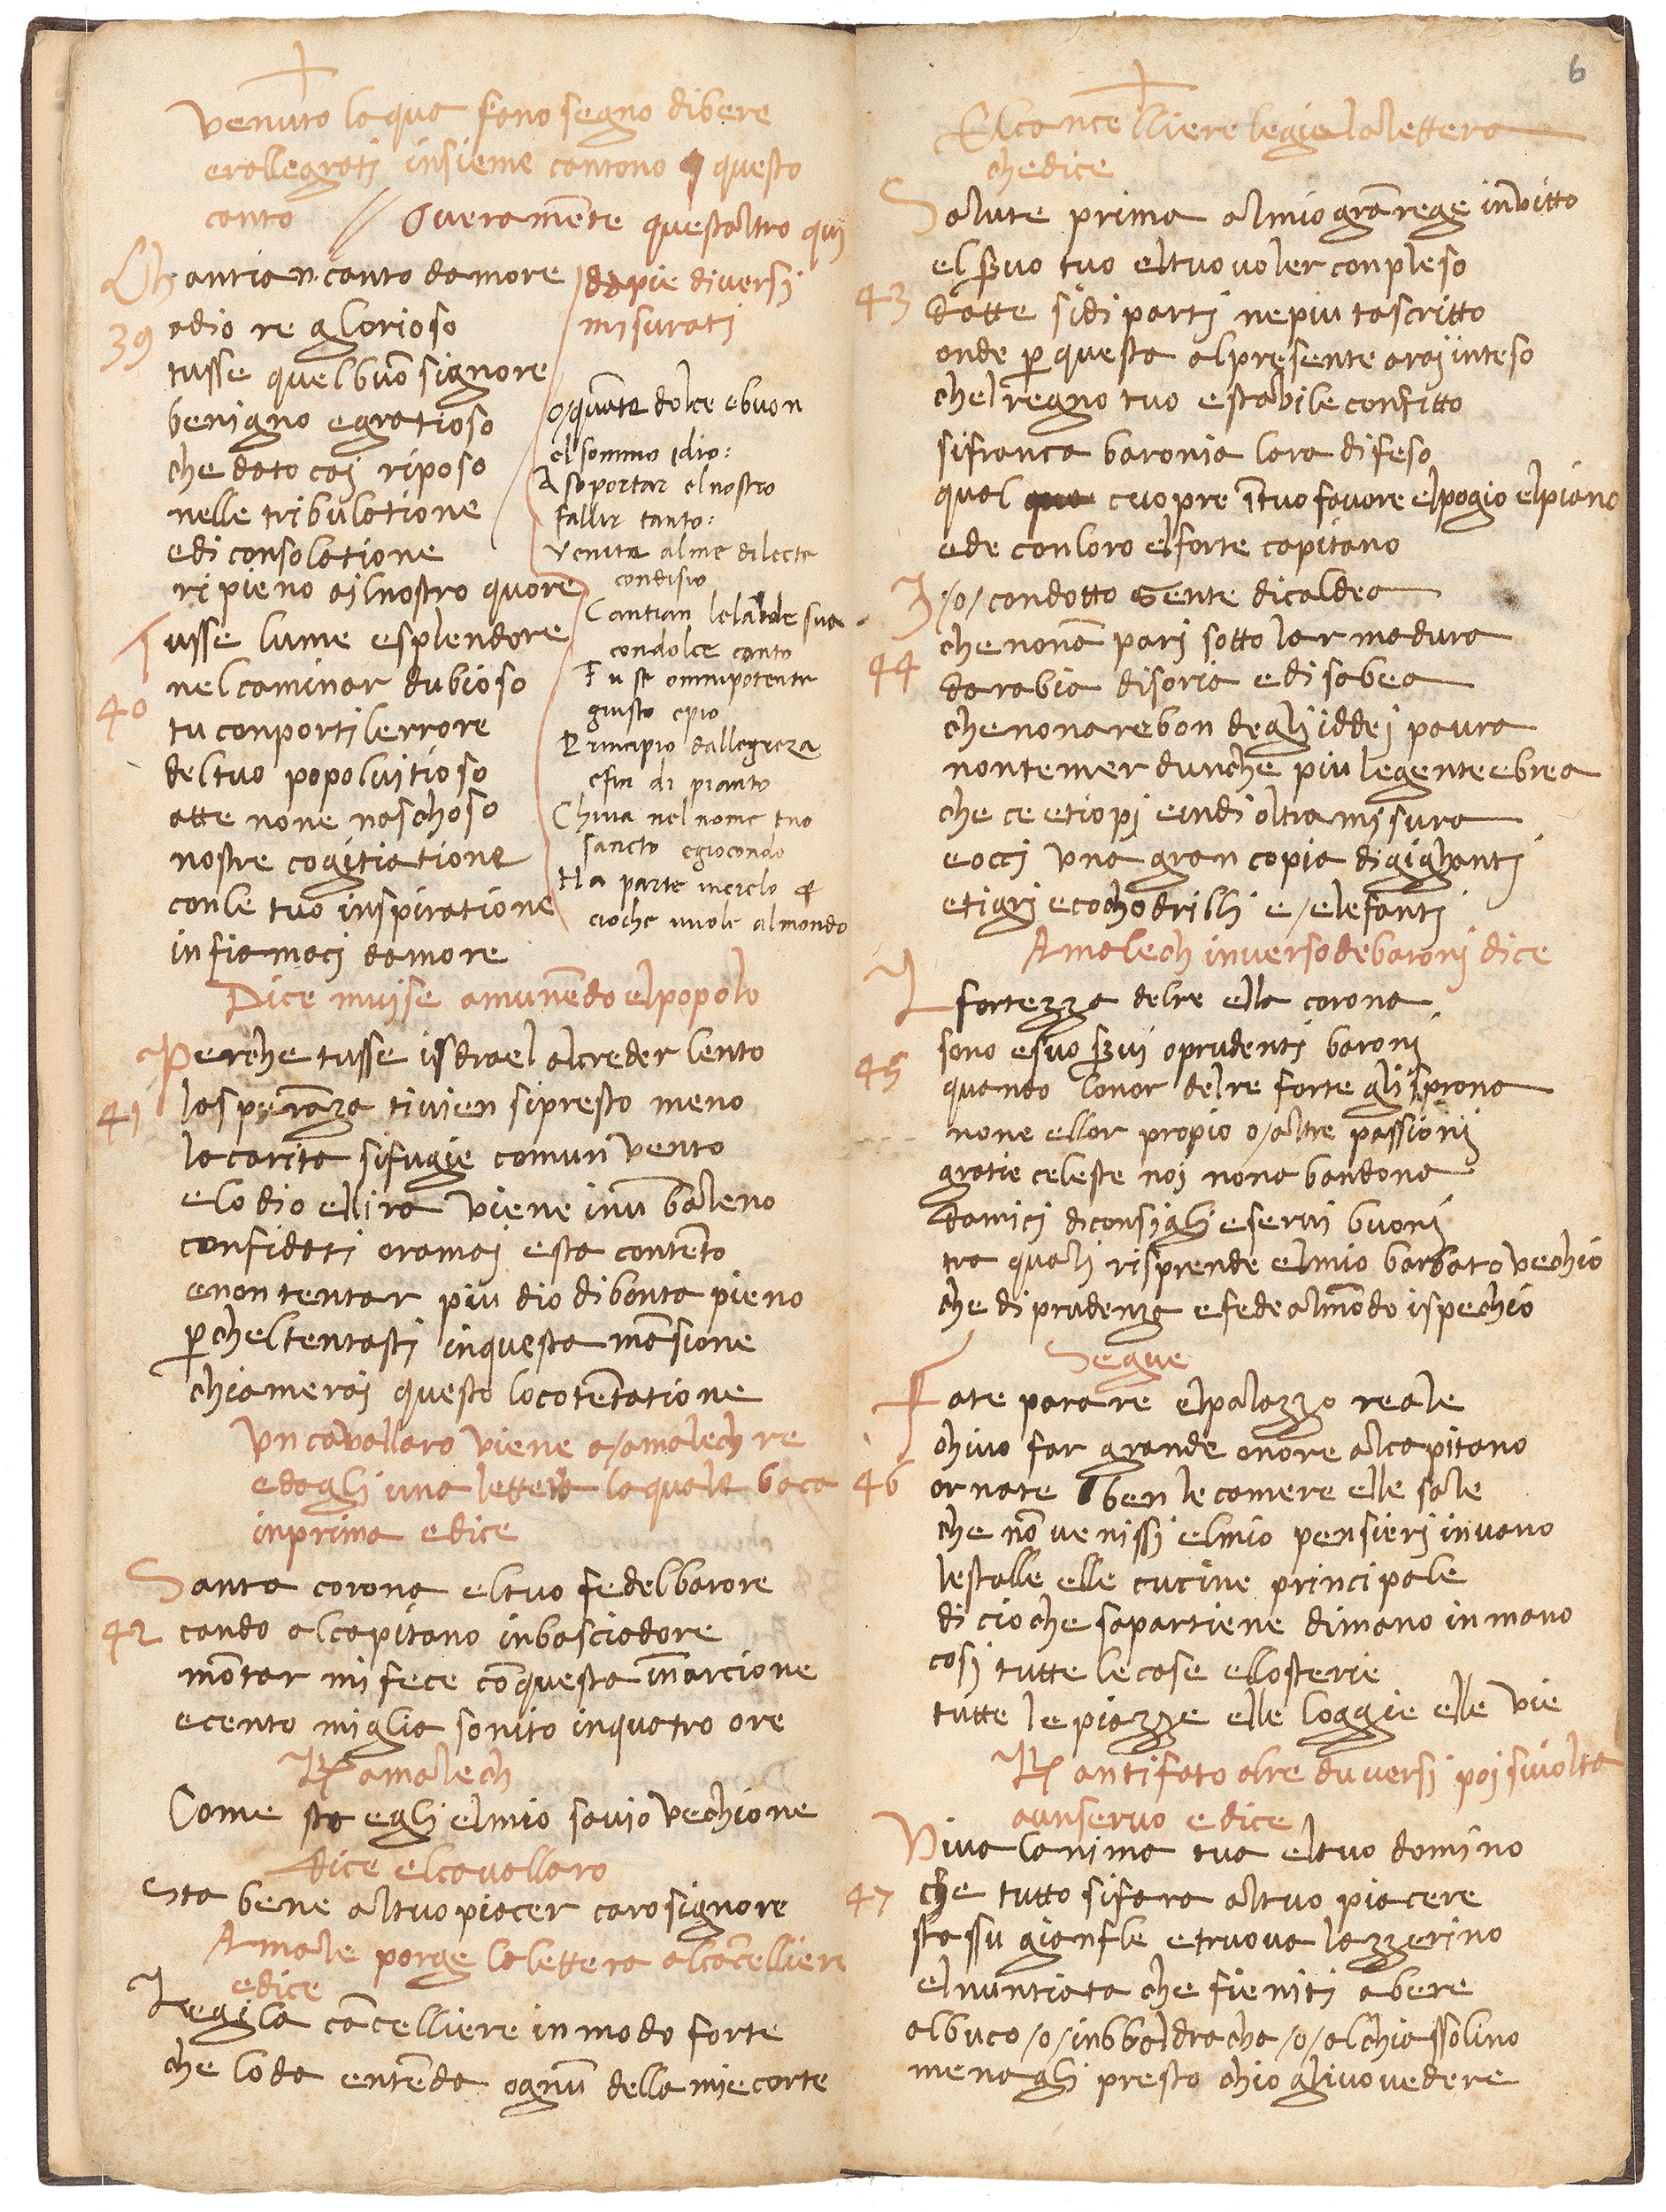 venuto laqua fano segno dibere
erallegrati insieme cantono questo
canto // Overamēte questaltro qui
dapie diversj
misuratj
Chantian canto damore
39 adio re glorioso
tusse quelbuō signore
benigno egratioso
che dato caj riposo
nelle tribulatione
edi consolatione
ripieno ajlnostro quore
Tusse lume esplendore
nelcaminar dubioso
40 tu conportj lerrore
deltuo popoluitioso
atte none naschoso
nostre cogitiatione
conle tuo inspiratione
infiamacj damore
o/quāto dolce ebuon
el sommo idio:
A soportar elnostro
fallir tanto:
Venite alme dilecte
condisio
Cantian lelalde sua
condolce canto
Tu se omnipotente
giusto epio
Principio dallegreza
efin di pianto
Chiva nel nome tuo
sancto egiocondo
Ha parte incielo &
cioche vuole almondo
Dice muise amunēdo elpopolo
Perche tusse isdrael alcreder lento
41 lasperāza tivien sipresto meno
la carita sifugie comun vento
elodio ellira viene inū baleno
confidatj oramaj esta contēto
enon tentar piu dio dibonta pieno
p̱cheltentastj inquesta māsione
chiameraj questo locotētatione
Vn cavallaro viene a/amalech re
edaglj una lettera laquale baca
inprima edice
Santa corona eltuo fedelbarore
42 cando alcapitano inbasciadore
mōtar mifece cōquesta īnarcione
ecento miglia sonito inquatro ore
R amalech
Come sta eglj elmio savio vechione
dice elcavallaro
Sta bene altuopiacer carosignore
Amale porge lalettera alcācelliere
edice
Legila cācelliere inmodo forte
che loda entēda ognū della miecorte
6
Elcancelliere legie lalettera
chedice
Salute prima almiogrā rege invitto
el s̱vo tuo eltuovoler conpleso
43 datte sidi partj nepiu tascritto
onde p̱ questa alpresente araj inteso
chelregno tuo estabile confitto
sifranca baronia lara difeso
qual cuopre ītuo favore elpogio elpiano
ede conloro elforte capitano
J /o/ condotto Gente dicaldea
che nonā parj sotto larmadura
44 darabia disoria edisabea
che nonarebon deglj iddej paura
nontemer dunche piu legente ebrea
che ce etiopj eindi oltra misura
eoccj una gran copia digighantj
etigrj ecochodrillj e/elefantj
Amalech inversodebaronj dice
L fortezza delre ella corona
sono esuo s̱vi oprudentj baronj
45 quando lonor delre forte glisprona
none ellor propio o/altre passionj
gratie celeste noj nona bandona
damicj diconsiglj eservi buonj
tra qualj risprende elmio barbato vechio
che di prudenza efede almōdo ispechio
Segue
Fate parare elpalazzo reale
chivo far grande onore alcapitano
46 ornate ben lecamere elle sale
che nō venissj elmio pensierj invano
lestalle elle cucine principale
di cioche sapartiene dimano inmano
cosj tutte lecase ellosterie
tutte lepiazze elle loggie elle vie
R antifato alre duversj poj sivolta
aunservo edice
Viva lanima tua eltuo domino
47 che tutto sifara altuo piacere
sta ssu gianfle etruova lazzerino
elnuntiata che fienitj abere
albuco /o/ inbbaldracha /o/ alchiassolino
menaglj presto chio glivovedere